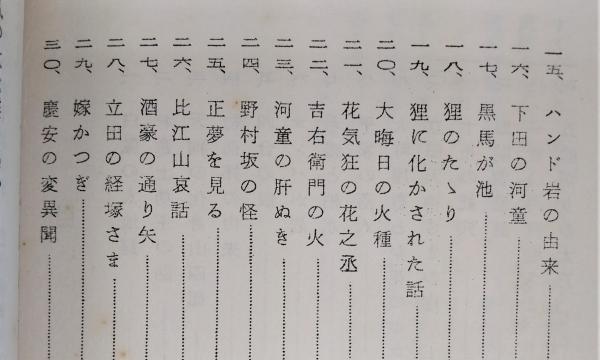 一五、ハンド岩の由来
一六、下田の河童
一七、黒馬が池
一八、狸のたゝり
一九、狸に化かされた話
二〇、大晦日の火種
二一、花気狂の花之丞
二二、吉右衛門の火
二三、河童の肝ぬき
二四、野村坂の怪
二五、正夢を見る
二六、比江山哀話
二七、酒豪の通り矢
二八、立田の経塚さま
二九、嫁かつぎ
三〇、慶安の変異聞